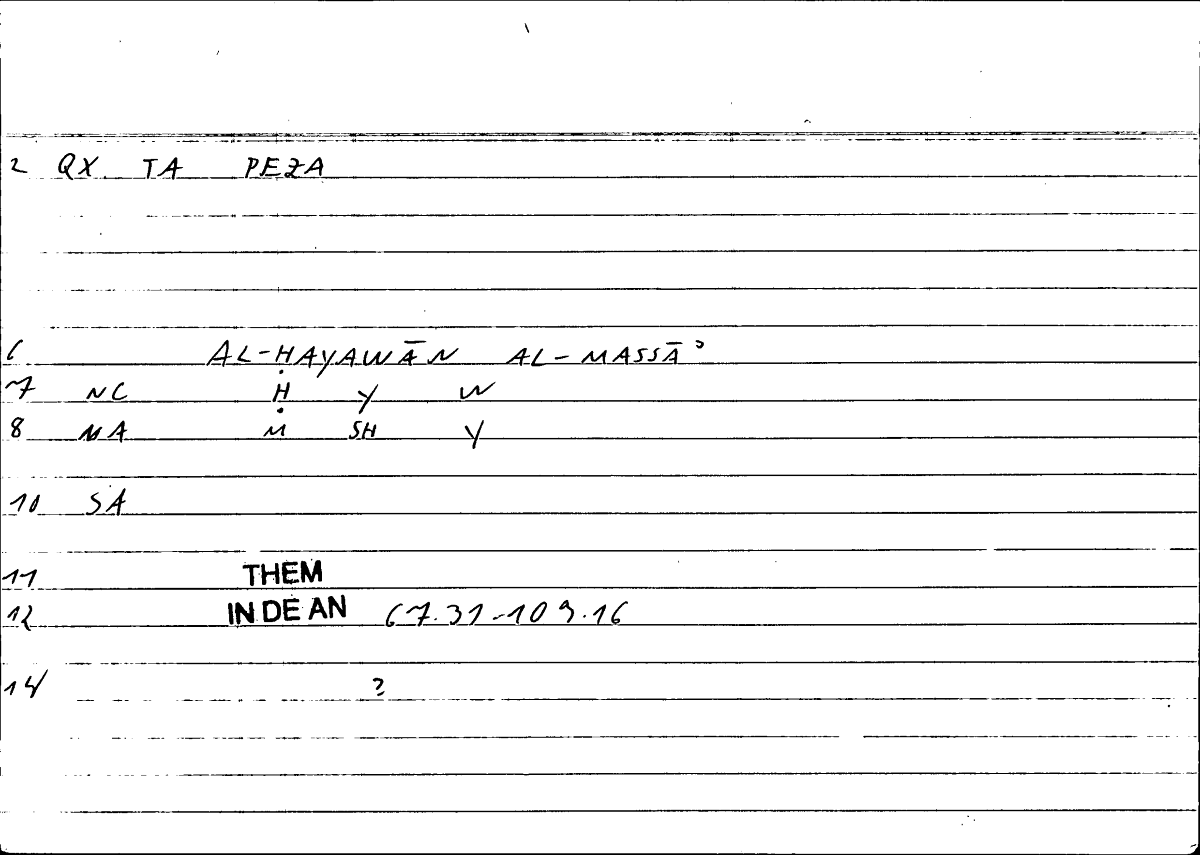 2 QX. TA PEZA
6 AL-ḤAYAWĀN AL-MASSĀʾ
7 NC Ḥ Y W
8 MA M SH Y
10 SA
11 THEM
12 IN DE AN 67.31-109.16
14 ?